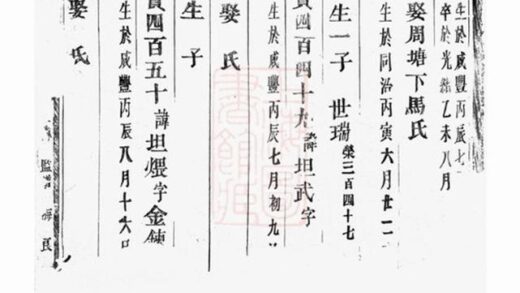 生於咸豐丙辰七
卒於光緒乙未八月
娶周塘下馬氏
生於同治丙寅六月廿一
生一子 世瑞榮三百四十七
貴四百四十九諱坦武字
生於咸豐丙辰七月初九
娶 氏
生 子
貴四百五十諱坦煨字金鍊
生於咸豐丙辰八月十六日
娶 氏